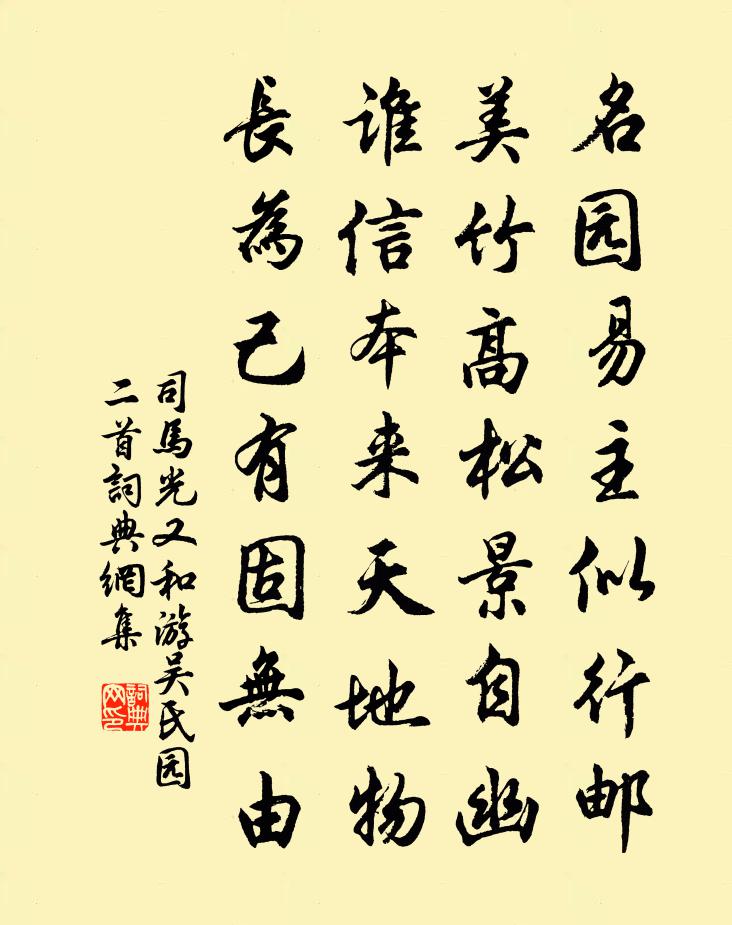 名园易主似行邮
美竹高松景自幽
谁信本来天地物
長為己有固無由
司馬光又和游吴氏园
二首詞典網集
詞典
网印